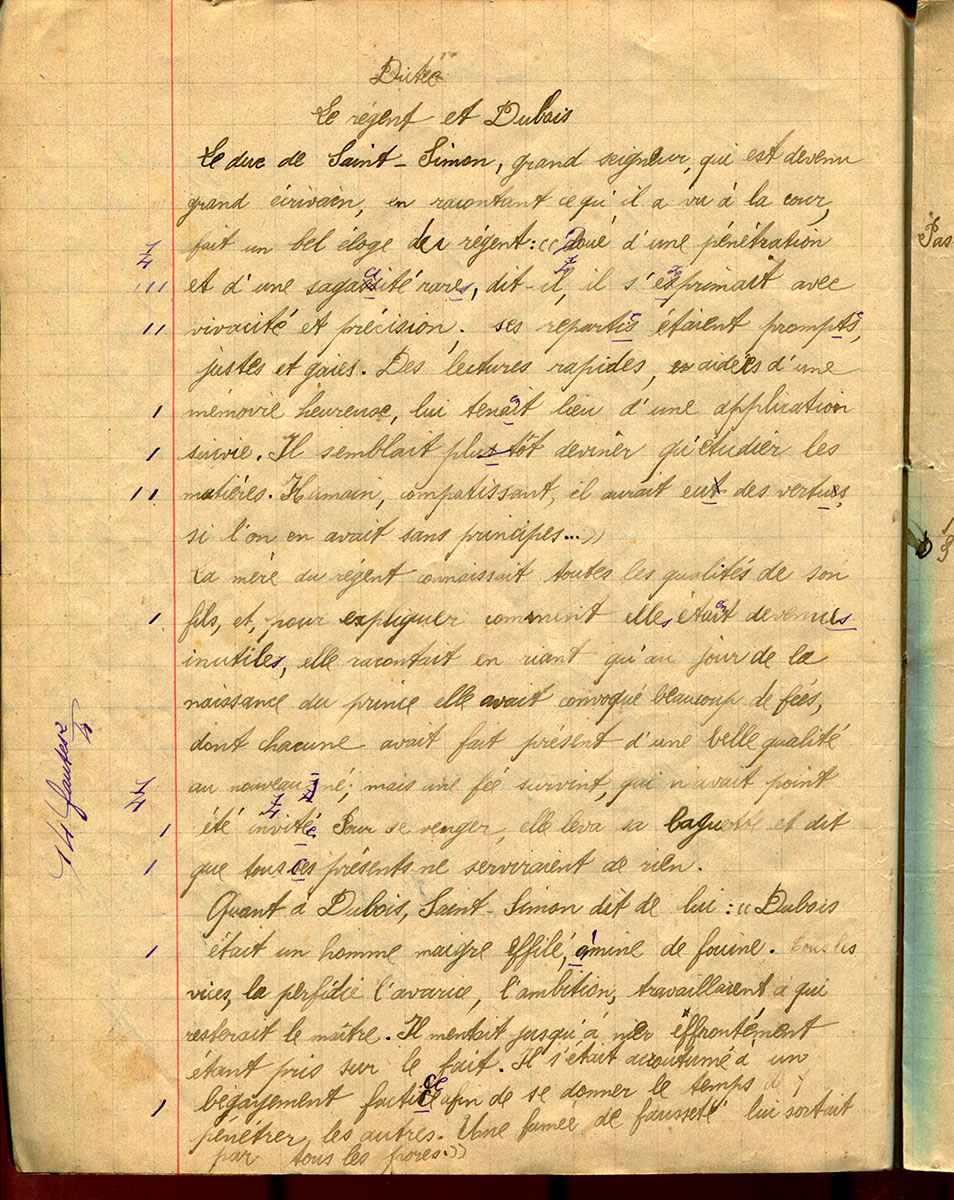 Dictée
Le régent et Dubois
Le duc de Saint-Simon, grand seigneur, qui est devenu
grand écrivain, en racontant ce qu'il a vu à la cour,
fait un bel éloge du régent : (( Doué d'une pénétration
et d'une sagacité rares, dit-il, il s'exprimait avec
vivacité et précision. ses reparties étaient promptes,
justes et gaies. Des lectures rapides, aidées d'une
mémoire heureuse, lui tenait lieu d'une application
suivie. Il semblait plus tôt deviner qu'étudier les
matières. Humain, compatissant, il aurait eut des vertues,
si l'on en avait sans principes...))
La mère du régent connaissait toutes les qualités de son
fils, et, pour expliquer comment elles étaient devenues
inutiles, elle racontait en riant qu'au jour de la
naissance du prince elle avait convoqué beaucoup de fées,
dont chacune avait fait présent d'une belle qualité
au nouveau né; mais une fée survint, qui n'avait point
été invitée Pour se venger, elle leva sa baguette et dit
que tous ces présents ne serviraient de rien.
Quant à Dubois, Saint-Simon dit de lui : (( Dubois
était un homme maigre effilé, à mine de fouine. Tous les
vices, la perfidie l'avarice, l'ambition, travaillaient à qui
resterait le maître. Il mentait jusqu'à nier effrontément
étant pris sur le fait. Il s'était accoutumé à un
bégayement factice afin de se donner le temps de
pénétrer les autres. Une fumée de fausseté lui sortait
par tous les pores.))
14 fautes
4
Pas